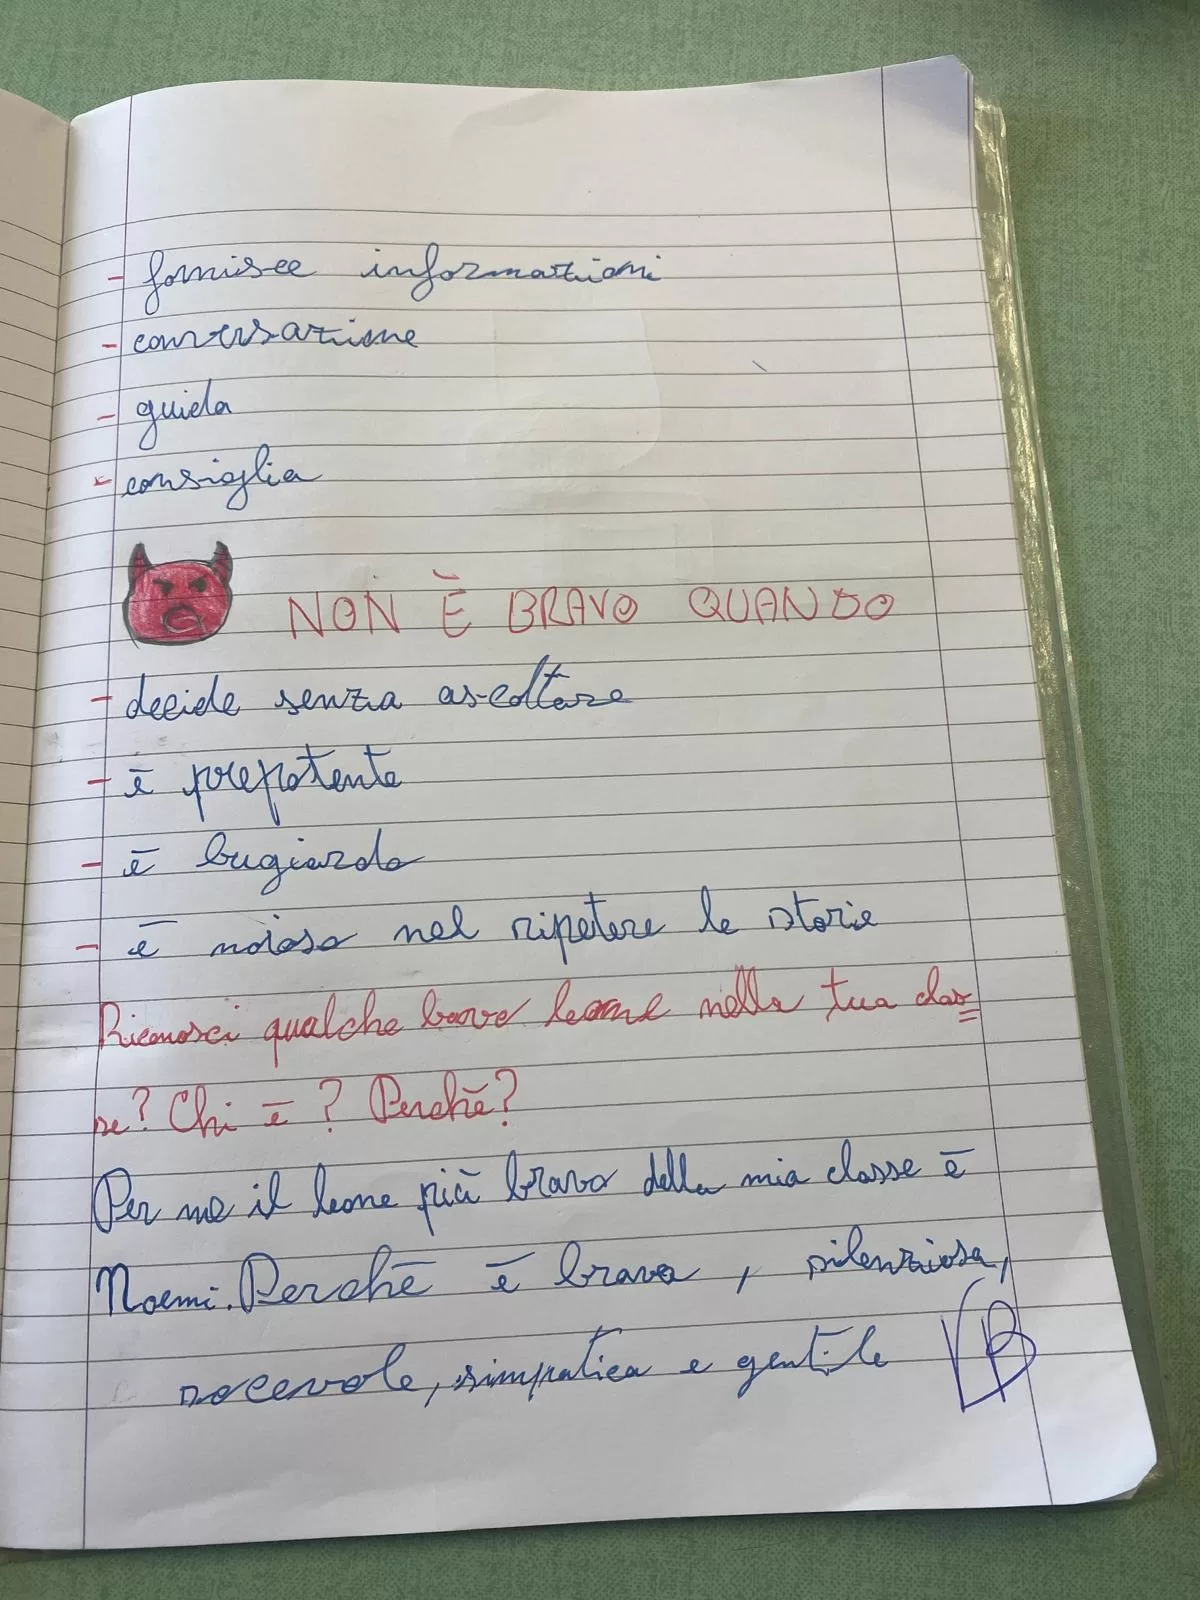 - fornisce informazioni
- conversazione
- guida
- consiglia
NON È BRAVO QUANDO
- decide senza ascoltare
- è prepotente
- è bugiardo
- è noioso nel ripetere le storie
Riconosci qualche bravo leone nella tua clas=
se? Chi è? Perchè?
Per me il leone più bravo della mia classe è
Noemi. Perchè è brava, silenziosa,
socevole, simpatica e gentile